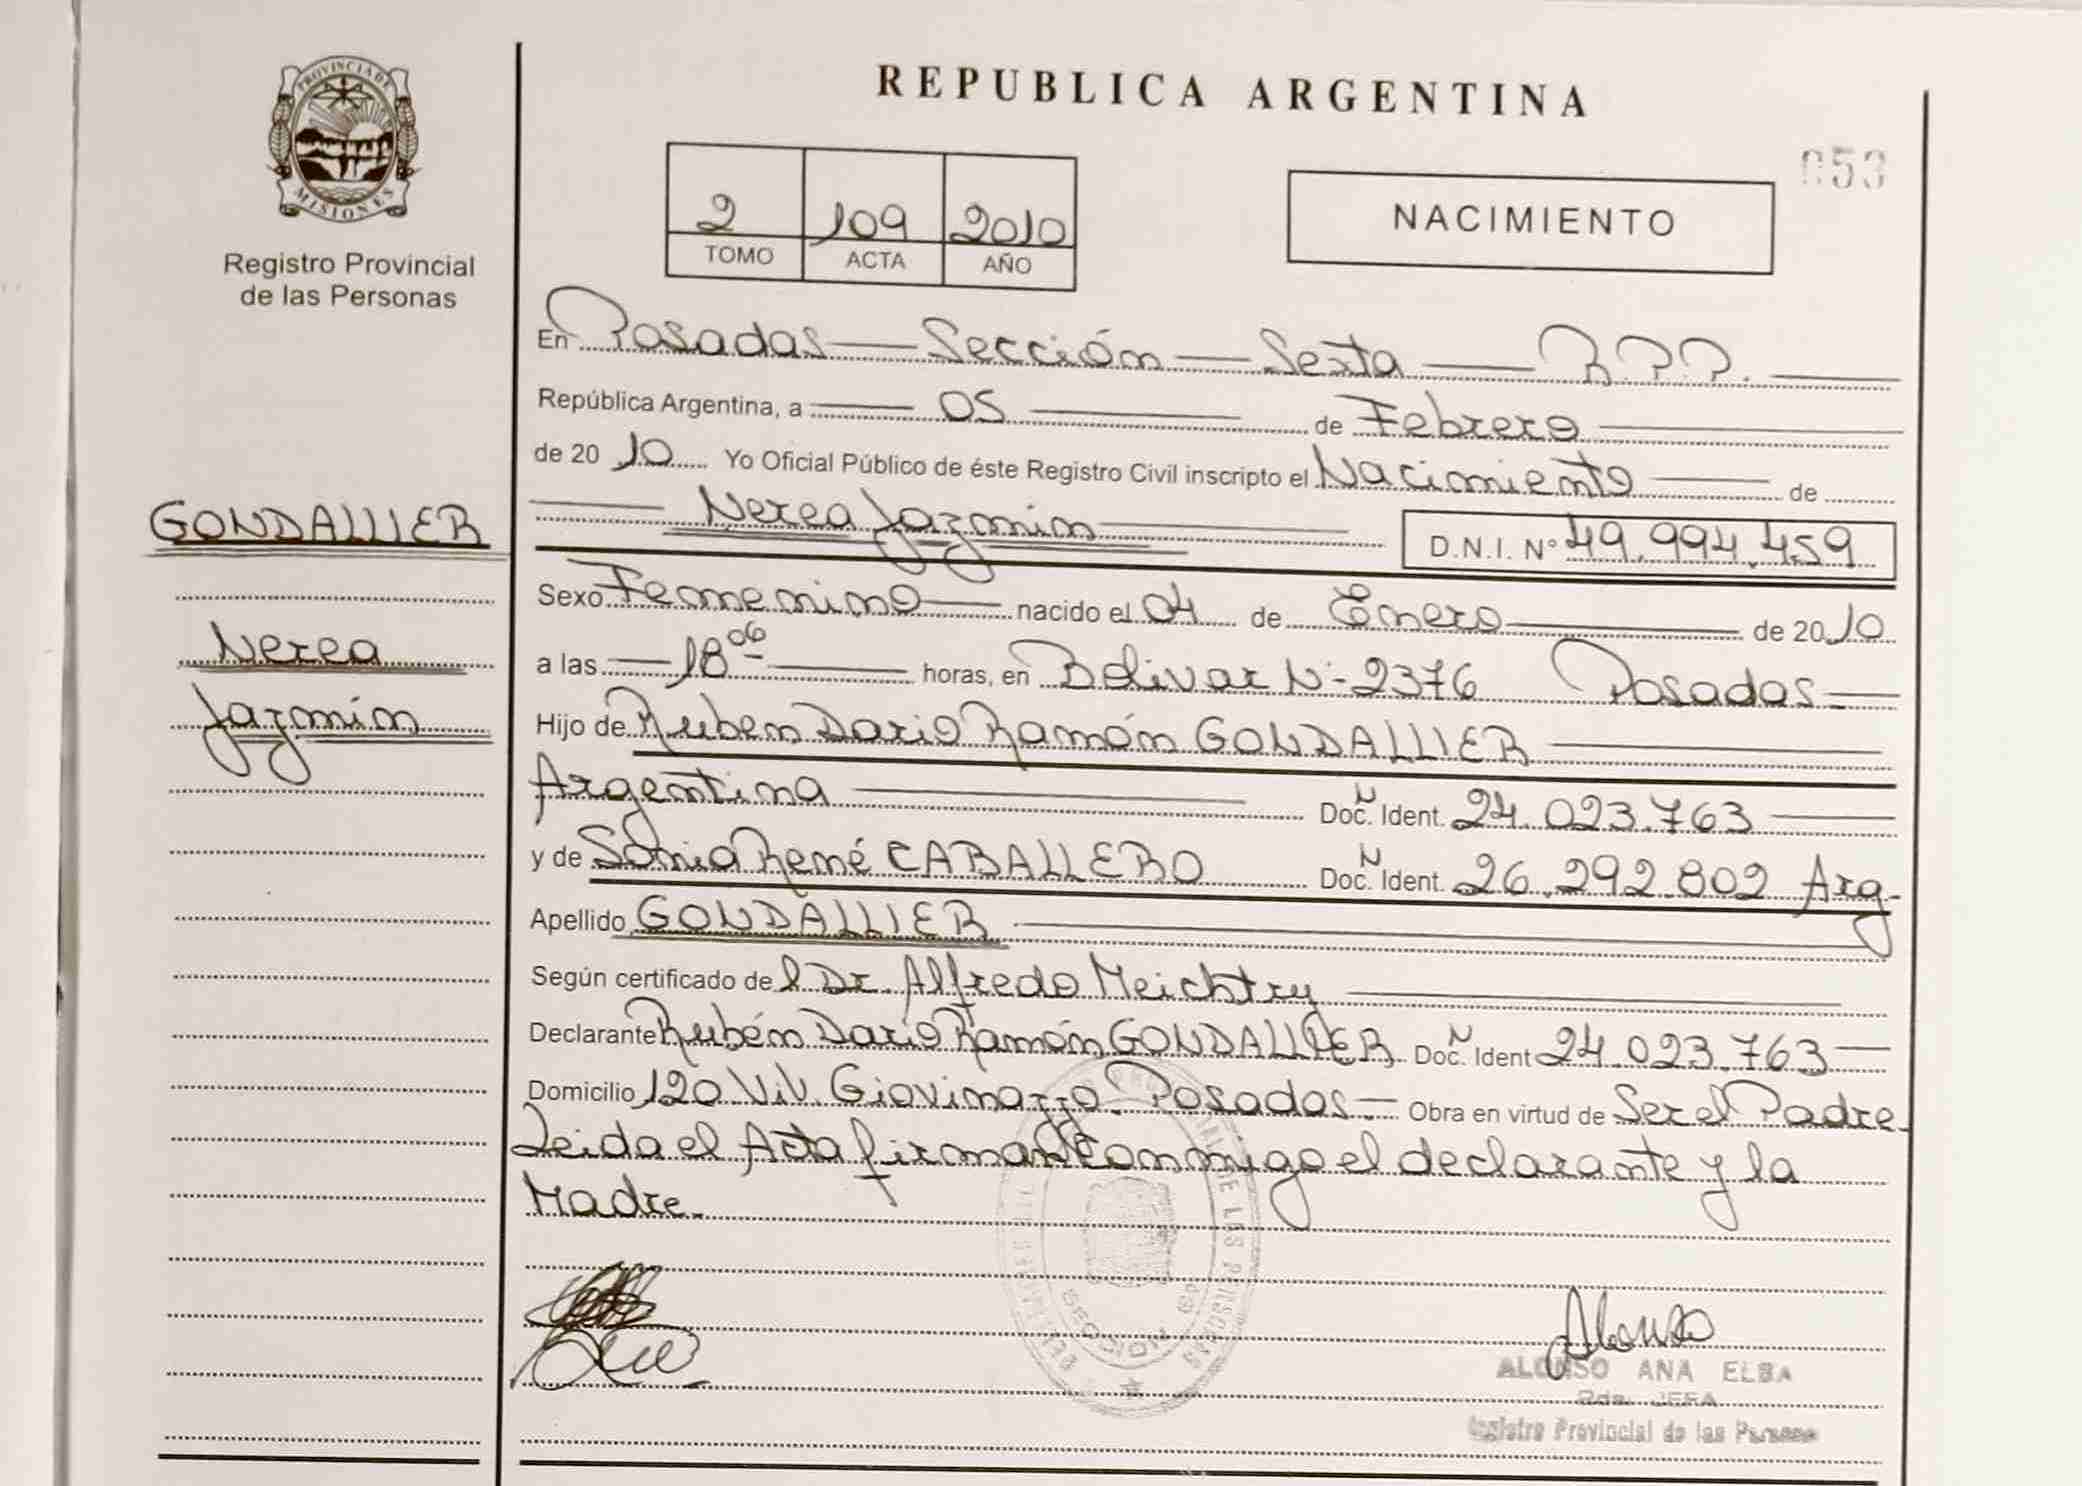 REPUBLICA ARGENTINA
053
PROVINCIA DE
MISIONES
Registro Provincial
de las Personas
2 109 2010
TOMO ACTA AÑO
NACIMIENTO
En Posadas — Sección — Sexta — R.P.P. —
República Argentina, a — 05 — de Febrero —
de 20 10 Yo Oficial Público de éste Registro Civil inscripto el Nacimiento — de
— Nerea Jazmín — D.N.I. Nº 49.994.459
GONDALLIER
Nerea
Jazmín
Sexo Femenino — nacido el 04 de Enero — de 20 10
a las — 18 06 — horas, en Bolivar N- 2376 Posadas —
Hijo de Ruben Dario Ramón GONDALLIER —
Argentina — Doc. N Ident. 24.023.763 —
y de Sonia René CABALLERO Doc. N Ident. 26.292.802 Arg-
Apellido GONDALLIER —
Según certificado de l Dr. Alfredo Meichtry —
Declarante Rubén Dario Ramón GONDALLIER Doc. N Ident 24.023.763 —
Domicilio 120 Viv. Giovinazzo. Posadas.— Obra en virtud de Ser el Padre.
Leida el Acta firman conmigo el declarante y la
Madre.
DE LAS PERSONAS
SECCION 6ª
Alonso
ALONSO ANA ELBA
JEFA
Registro Provincial de las Personas